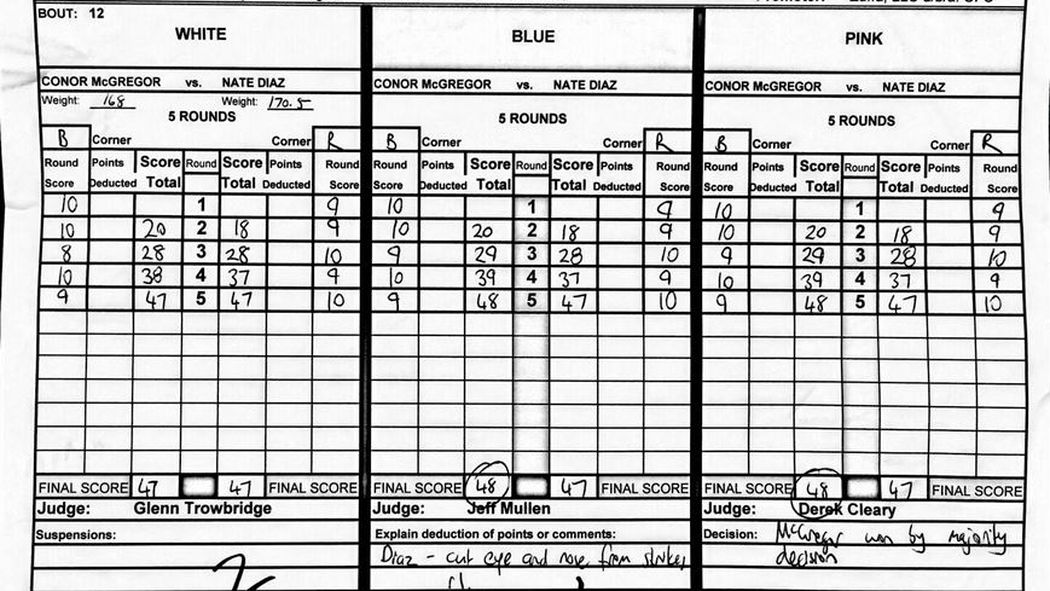 BOUT: 12
WHITE BLUE PINK
CONOR McGREGOR vs. NATE DIAZ CONOR McGREGOR vs. NATE DIAZ CONOR McGREGOR vs. NATE DIAZ
Weight: 168 Weight: 170.5
5 ROUNDS 5 ROUNDS 5 ROUNDS
B Corner Corner R B Corner Corner R B Corner Corner R
Round Points Score Round Score Points Round Round Points Score Round Score Points Round Round Points Score Round Score Points Round
Score Deducted Total Total Deducted Score Score Deducted Total Total Deducted Score Score Deducted Total Total Deducted Score
10 1 9 10 1 9 10 1 9
10 20 2 18 9 10 20 2 18 9 10 20 2 18 9
8 28 3 28 10 9 29 3 28 10 9 29 3 28 10
10 38 4 37 9 10 39 4 37 9 10 39 4 37 9
9 47 5 47 10 9 48 5 47 10 9 48 5 47 10
FINAL SCORE 47 47 FINAL SCORE FINAL SCORE 48 47 FINAL SCORE FINAL SCORE 48 47 FINAL SCORE
Judge: Glenn Trowbridge Judge: Jeff Mullen Judge: Derek Cleary
Suspensions: Explain deduction of points or comments: Decision: McGregor won by majority
Diaz - cut eye and nose from strikes decision